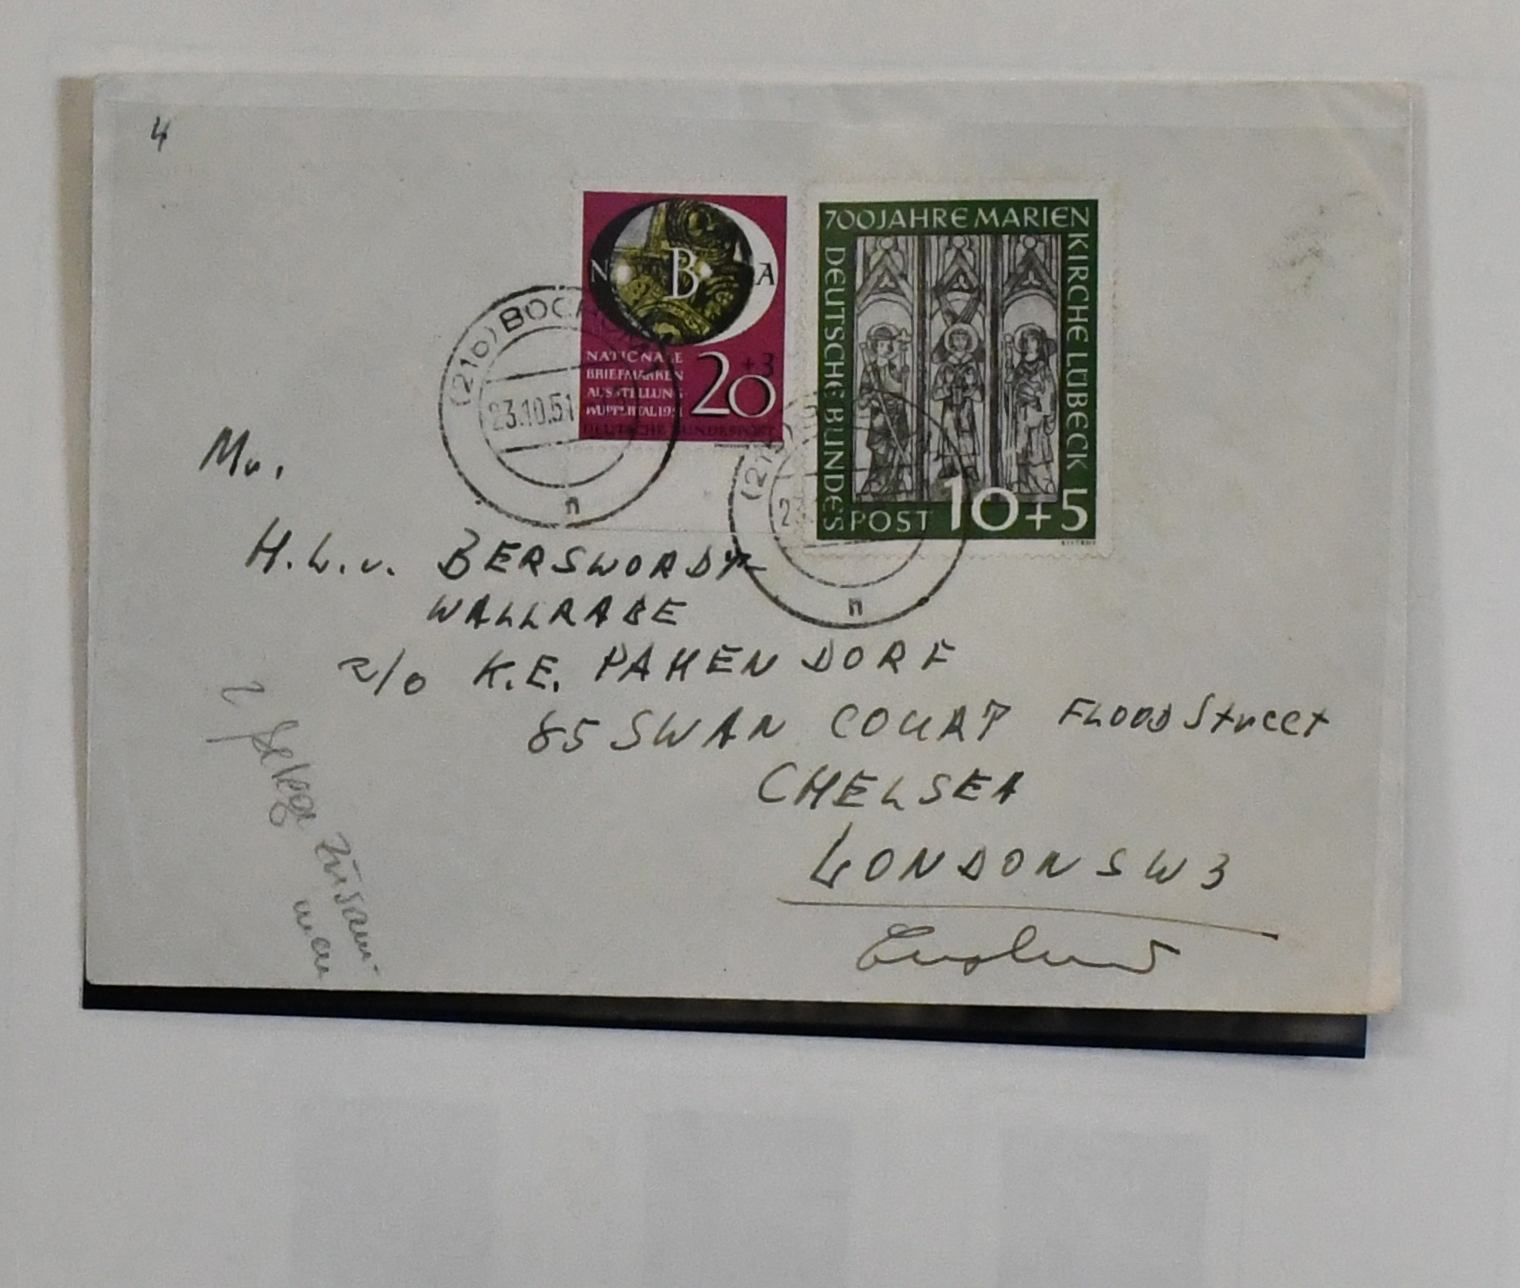 4
N B A
NATIONALE
BRIEFMARKEN
AUSSTELLUNG
WUPPERTAL 1951
20 +3
DEUTSCHE BUNDESPOST
700 JAHRE MARIEN
KIRCHE LÜBECK
DEUTSCHE BUNDES
POST 10+5
BOCHUM
23.10.51
n
n
Mr.
H.L.v. BERSWORDT
WALLRABE
c/o K.E. PAHENDORF
85 SWAN COURT FLOOD Street
CHELSEA
LONDON SW3
England
2 Belege zusam-
men